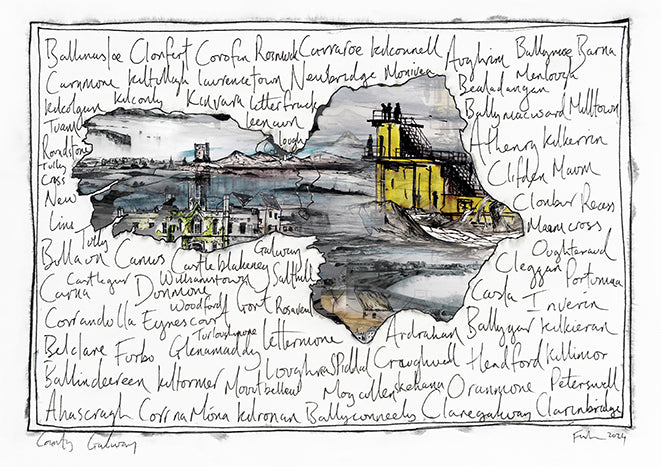 Ballinasloe Clonfert Corofin Rosmuck Carraroe Kilconnell Aughrim Ballymoe Barna
Carnmore Kiltullagh Lawrencetown Newbridge Monivea Bealadangan Menlough
Kilcolgan Kilconly Kinvara Letterfrack Ballymacward Milltown
Tuam Leenaun Athenry Kilkerrin
Roundstone Lough
Tully Clifden Maam
Cross
New Clonbur Recess
Line Maam Cross
Tully Oughterard
Bullaun Camus Castleblakeney Galway Cleggan Portumna
Castlegar Williamstown Salthill
Carna Dunmore Casla Inverin
Woodford Gort Rosaveal
Corrandolla Eyrecourt Ardrahan Ballygar Kilkieran
Turloughmore
Belclare Furbo Glenamaddy Lettermore
Loughrea Spiddal Craughwell Headford Killimor
Ballindereen Kiltormer Mountbellew Moycullen Skehana Oranmore Peterswell
Ahascragh Corr na Móna Kilronan Ballyconneely Claregalway Clarinbridge
County Galway 2024